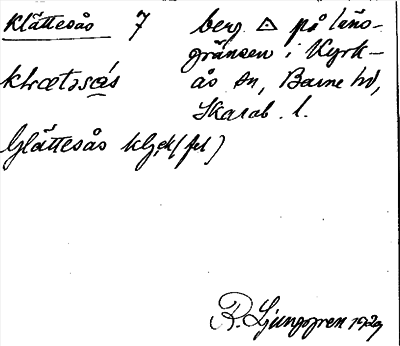 Klättesås 7 berg △ på läns-
gränsen i Kyrk-
ås sn, Barne hd,
Skarab. l.
klætəsås
Glättesås
R. Ljunggren 1929